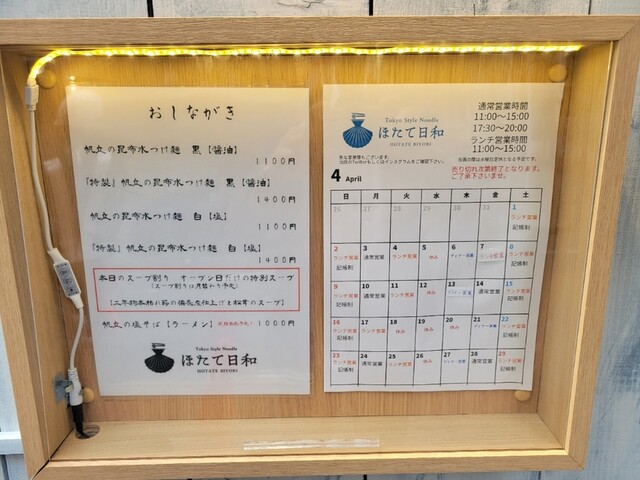 おしながき
帆立の昆布水つけ麺 黒【醤油】
1100円
『特製』帆立の昆布水つけ麺 黒【醤油】
1400円
帆立の昆布水つけ麺 白【塩】
1100円
『特製』帆立の昆布水つけ麺 白【塩】
1400円
本日のスープ割り オープン日だけの特別スープ
(スープ割りは月替わり予定)
帆立の塩そば【ラーメン】
1000円
Tokyo Style Noodle
ほたて日和
HOTATE BIYORI
Tokyo Style Noodle
ほたて日和
HOTATE BIYORI
通常営業時間
11:00～15:00
17:30～20:00
ランチ営業時間
11:00～15:00
売り切れ次第終了となります。
ご了承下さいませ。
4 April
日 月 火 水 木 金 土
26 27 28 29 30 31 1
ランチ営業
記帳制
2 3 4 5 6 7 8
ランチ営業 通常営業 ランチ営業 休み ディナー営業 ランチ営業 ランチ営業
記帳制 記帳制
9 10 11 12 13 14 15
ランチ営業 通常営業 ランチ営業 休み ディナー営業 通常営業 ランチ営業
記帳制 記帳制
16 17 18 19 20 21 22
ランチ営業 ランチ営業 休み 休み 休み ディナー営業 ランチ営業
記帳制 記帳制
23 24 25 26 27 28 29
ランチ営業 通常営業 ランチ営業 休み ディナー営業 通常営業 ランチ営業
記帳制 記帳制